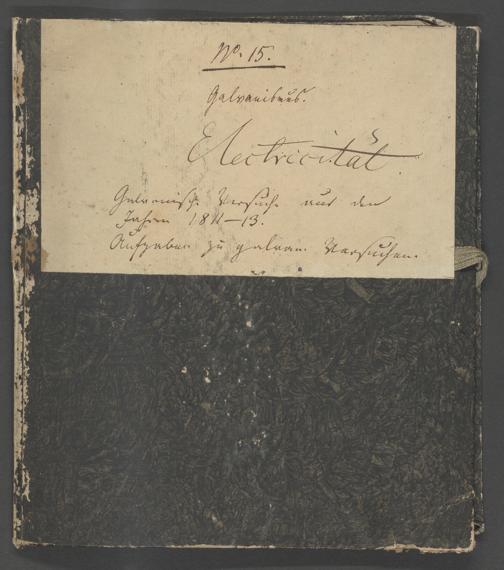 No. 15.
Galvanismus.
Electricität.
Galvanische Versuche aus den
Jahren 1811–13.
Aufgaben zu galvan. Versuchen.